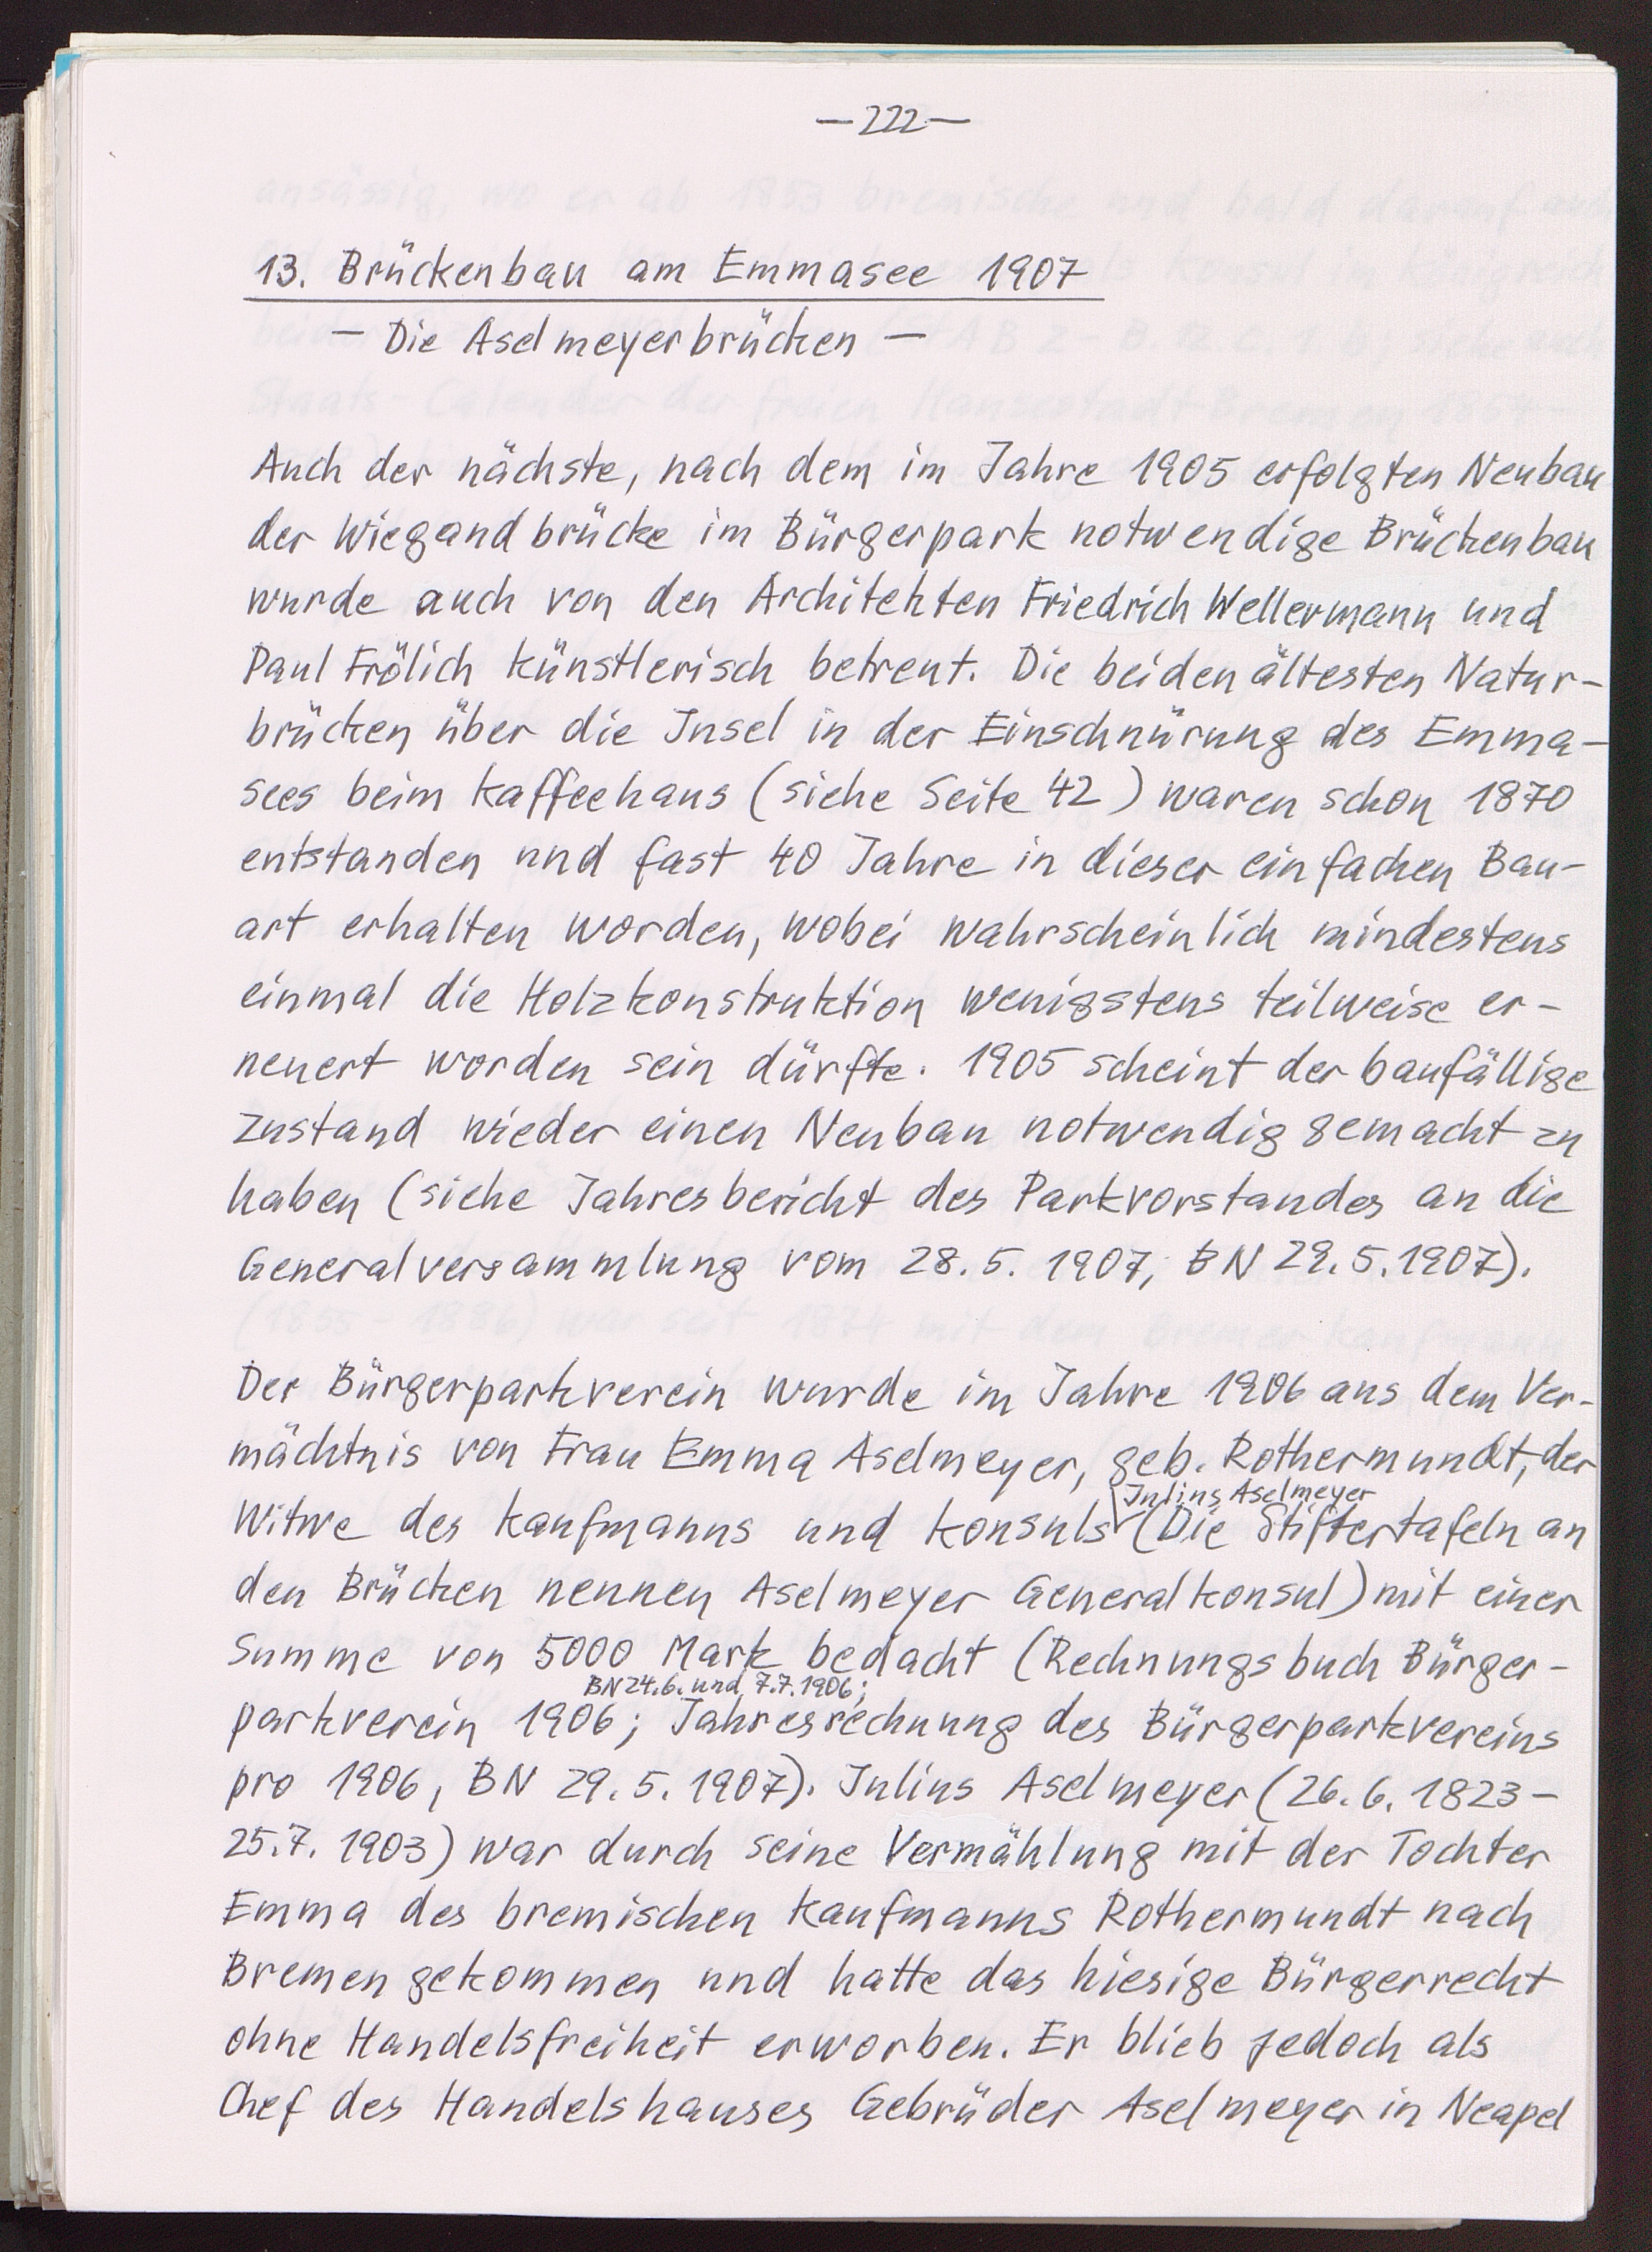 —222—
13. Brückenbau am Emmasee 1907
— Die Aselmeyerbrücken —
Auch der nächste, nach dem im Jahre 1905 erfolgten Neubau
der Wiegandbrücke im Bürgerpark notwendige Brückenbau
wurde auch von den Architekten Friedrich Wellermann und
Paul Frölich künstlerisch betreut. Die beiden ältesten Natur-
brücken über die Insel in der Einschnürung des Emma-
sees beim Kaffeehaus (siehe Seite 42) waren schon 1870
entstanden und fast 40 Jahre in dieser einfachen Bau-
art erhalten worden, wobei wahrscheinlich mindestens
einmal die Holzkonstruktion wenigstens teilweise er-
neuert worden sein dürfte. 1905 scheint der baufällige
Zustand wieder einen Neubau notwendig gemacht zu
haben (siehe Jahresbericht des Parkvorstandes an die
Generalversammlung vom 28.5. 1907, BN 29.5.1907).
Der Bürgerparkverein wurde im Jahre 1906 aus dem Ver-
mächtnis von Frau Emma Aselmeyer, geb. Rothermundt, der
Julius Aselmeyer
Witwe des Kaufmanns und Konsuls (Die Stiftertafeln an
den Brücken nennen Aselmeyer Generalkonsul) mit einer
Summe von 5000 Mark bedacht (Rechnungsbuch Bürger-
BN 24.6. und 7.7.1906;
parkverein 1906; Jahresrechnung des Bürgerparkvereins
pro 1906, BN 29.5.1907). Julius Aselmeyer (26.6.1823-
25.7.1903) war durch seine Vermählung mit der Tochter
Emma des bremischen Kaufmanns Rothermundt nach
Bremen gekommen und hatte das hiesige Bürgerrecht
ohne Handelsfreiheit erworben. Er blieb jedoch als
Chef des Handelshauses Gebrüder Aselmeyer in Neapel